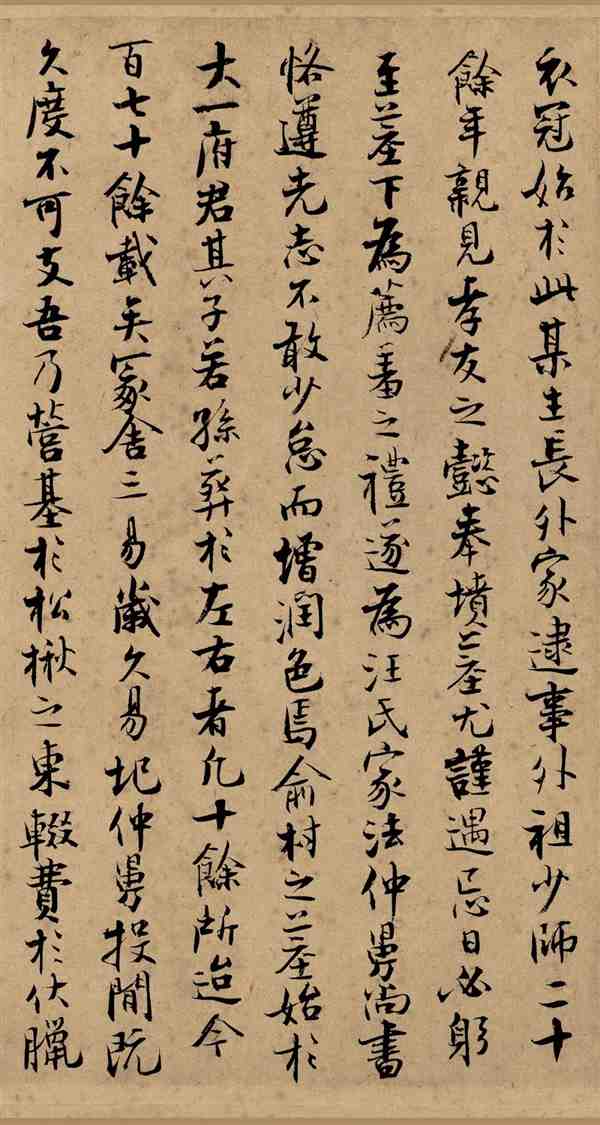 衣冠始於此某生長外家逮事外祖少師二十
餘年親見孝友之懿奉墳墓尤謹遇忌日必躬
至墓下為薦羞之禮遂為汪氏家法仲舅尚書
恪遵先志不敢少怠而增潤色焉俞村之墓始於
大一府君其子若孫葬於左右者凡十餘所迨今
百七十餘載矣冢舍三易歲久易圮仲舅投閒既
久度不可支吾乃營基於松楸之東輟費於伏臘